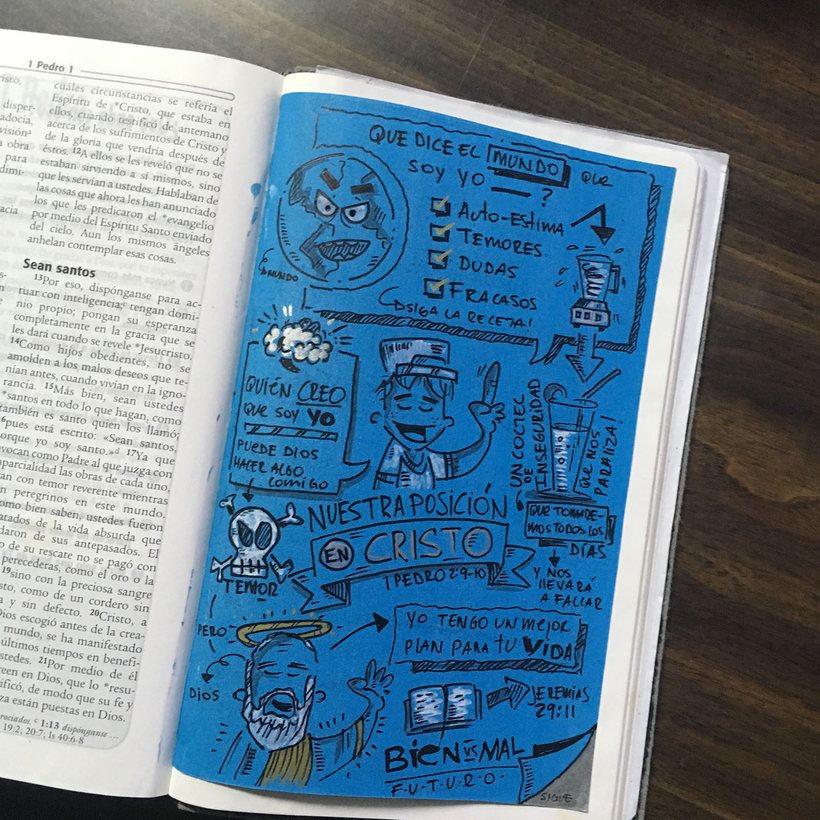 1 Pedro 1
cuáles circunstancias se refería el
Espíritu de *Cristo, que estaba en
ellos, cuando testificó de antemano
acerca de los sufrimientos de Cristo y
de la gloria que vendría después de
éstos. 12A ellos se les reveló que no se
estaban sirviendo a sí mismos, sino
que les servían a ustedes. Hablaban de
las cosas que ahora les han anunciado
los que les predicaron el *evangelio
por medio del Espíritu Santo enviado
del cielo. Aun los mismos ángeles
anhelan contemplar esas cosas.
Sean santos
13Por eso, dispónganse para ac-
tuar con inteligencia; tengan domi-
nio propio; pongan su esperanza
completamente en la gracia que se
les dará cuando se revele *Jesucristo.
14Como hijos obedientes, no se
amolden a los malos deseos que te-
nían antes, cuando vivían en la igno-
rancia. 15Más bien, sean ustedes
*santos en todo lo que hagan, como
también es santo quien los llamó;
pues está escrito: «Sean santos,
porque yo soy santo.» 17Ya que
vocan como Padre al que juzga con
parcialidad las obras de cada uno,
an con temor reverente mientras
peregrinos en este mundo.
omo bien saben, ustedes fueron
atados de la vida absurda que
daron de sus antepasados. El
o de su rescate no se pagó con
perecederas, como el oro o la
19sino con la preciosa sangre
sto, como de un cordero sin
a y sin defecto. 20Cristo, a
Dios escogió antes de la crea-
mundo, se ha manifestado
últimos tiempos en benefi-
stedes. 21Por medio de él
reen en Dios, que lo *resu-
ificó, de modo que su fe y
za están puestas en Dios.
1:13 dispónganse
19.2; 20:7; Is 40:6-8
QUE DICE EL MUNDO QUE
SOY YO ?
AUTO-ESTIMA
TEMORES
DUDAS
FRACASOS
SIGA LA RECETA!
MUNDO
QUIÉN CREO
QUE SOY YO
PUEDE DIOS
HACER ALGO
COMIGO
UN COCTEL
DE
INSEGURIDAD
QUE NOS
PARALIZA!
QUE TOMARE-
MOS TODOS LOS
DÍAS
Y NOS
LLEVARÁ
A FALLAR
TEMOR
NUESTRA POSICIÓN
EN CRISTO
1 PEDRO 2:9-10
PERO
DIOS
YO TENGO UN MEJOR
PLAN PARA TU VIDA
JEREMÍAS
29:11
BIEN VS MAL
F·U·T·U·R·O·
SIGUE